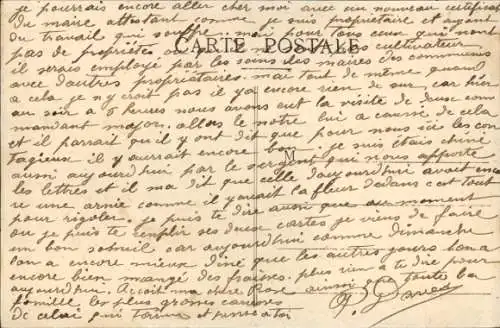 je pourrais encore aller cher moi avec un nouveau certificat
du maire attestant comme je suis propriétaire et ayant
du travail qui souffre. mai pour tous ceux qui n'ont
CARTE POSTALE
pas de propriétés cultivateur
il serais employé par les soins des maires des communes
avec d'autres propriétaires. mai tout de même quand
a cela je n'y croit pas il y a encore rien de sur car hier
au soir a 6 heures nous avons eut la visite de deux com
mandant major. allors le notre lui a causé de cela
et il parrait qu'il y ont dit que pour nous ici les con
tagieux il y aurait encore bon. je suis étais
M
aussi aujourd'hui par le sergent qui nous apporte
les lettres et il ma dit que celle d'aujourd'hui avait enco
re une armée comme il y avait la fleur dedans c'est tout
pour rigoler. je puis te dire aussi que au moment
ou je puis te remplir ses deux cartes je viens de faire
un bon sommeil car aujourd'hui comme dimanche
l'on a encore mieux diné que les autres jours l'on a
encore bien mangé des fraises. plus rien a te dire pour
aujourd'hui. Reçoit ma chère Rose ainsi que toute la
famille les plus grosses caresses
de celui qui t'aime et pense a toi